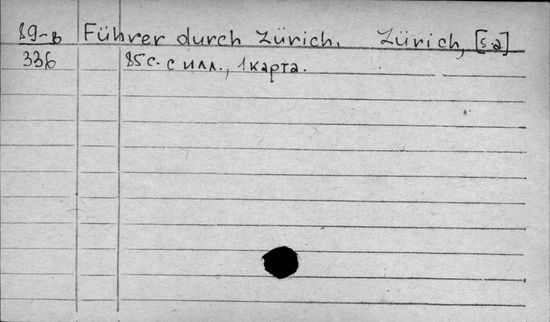 89-в Führer durch Zürich. Zürich, [s.a]
336 85 с. с илл., 1 карта.